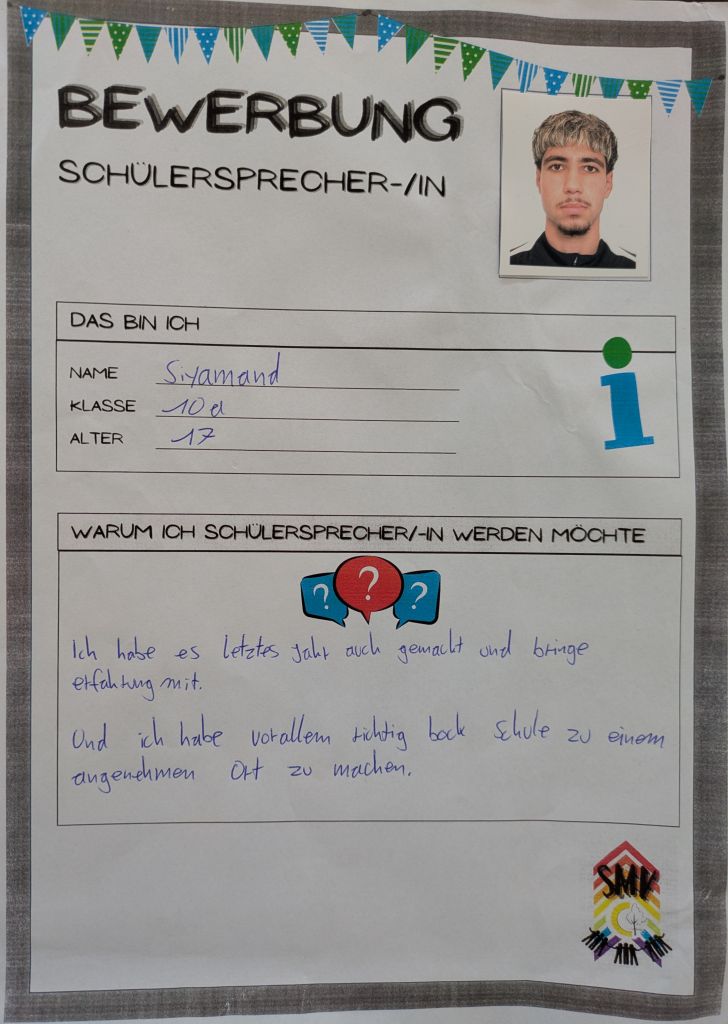 BEWERBUNG
SCHÜLERSPRECHER-/IN
DAS BIN ICH
NAME Siyamand
KLASSE 10d
ALTER 17
i
WARUM ICH SCHÜLERSPRECHER/-IN WERDEN MÖCHTE
? ? ?
Ich habe es letztes Jahr auch gemacht und bringe
erfahrung mit.
Und ich habe vorallem richtig bock Schule zu einem
angenehmen Ort zu machen.
SMV